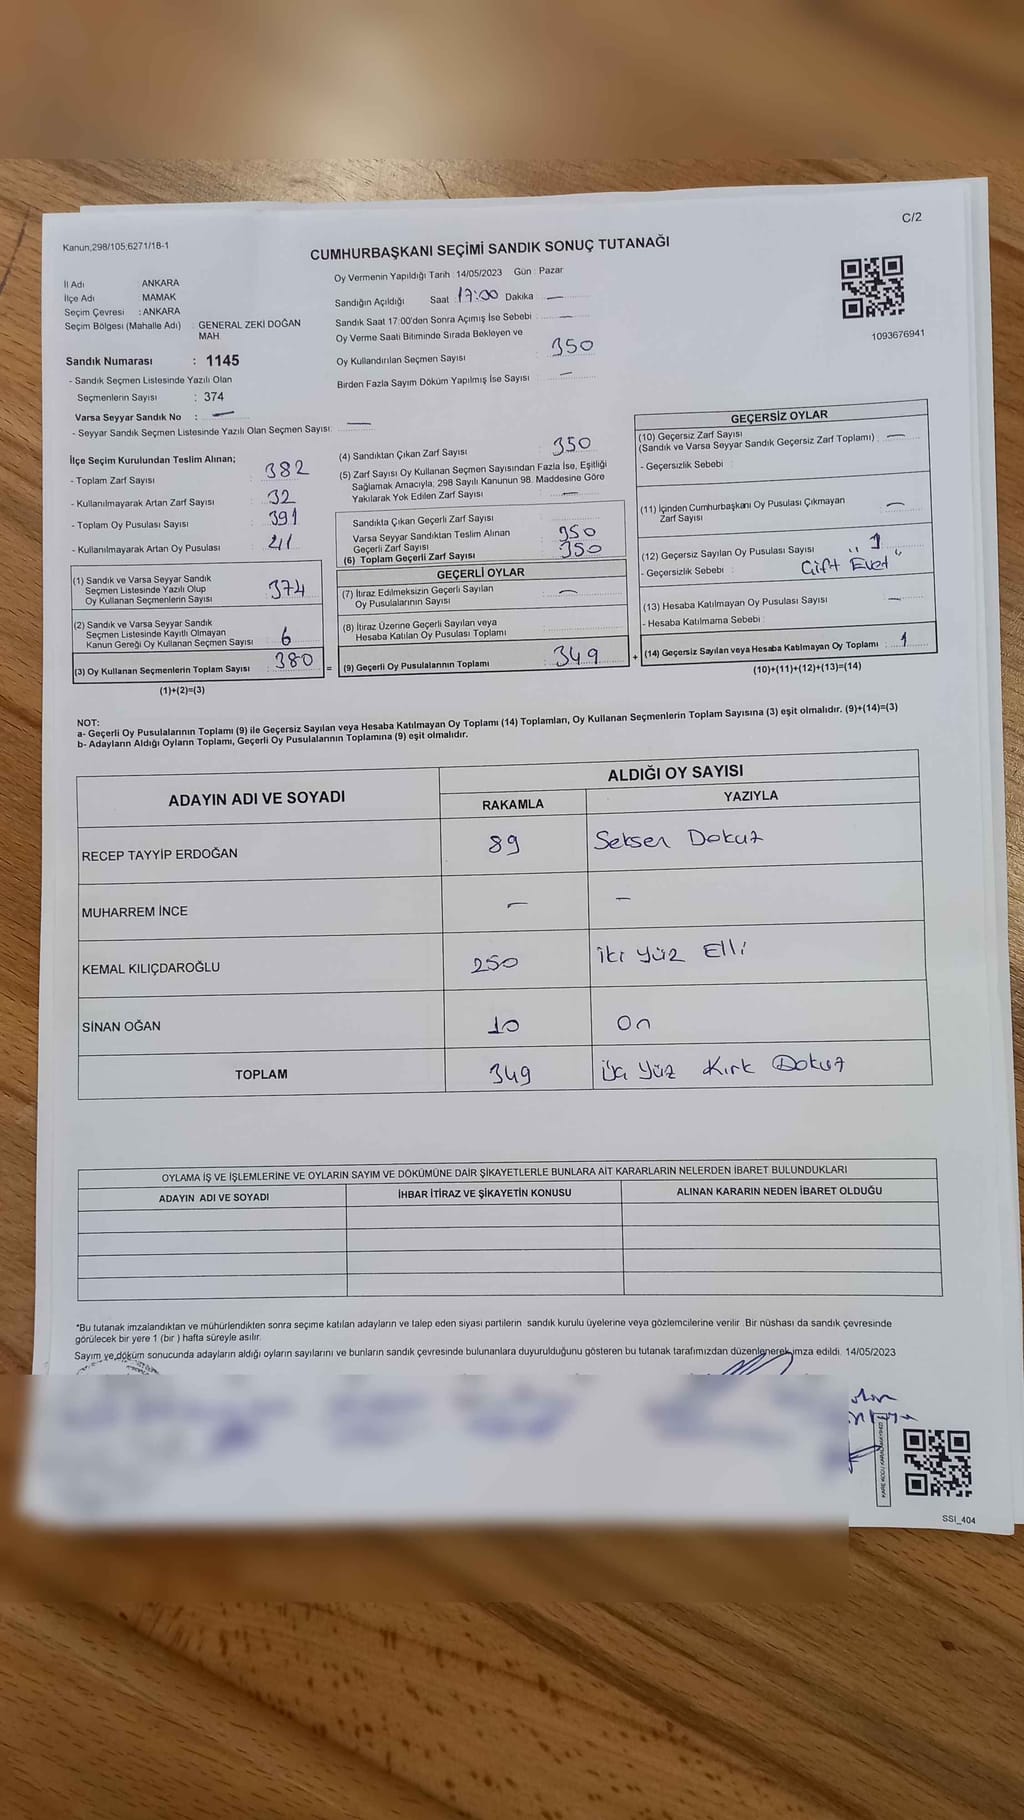 C/2
Kanun,298/105,6271/18-1
CUMHURBAŞKANI SEÇİMİ SANDIK SONUÇ TUTANAĞI
İl Adı ANKARA
İlçe Adı MAMAK
Seçim Çevresi : ANKARA
Seçim Bölgesi (Mahalle Adı) : GENERAL ZEKİ DOĞAN
MAH
Sandık Numarası : 1145
- Sandık Seçmen Listesinde Yazılı Olan
Seçmenlerin Sayısı : 374
Varsa Seyyar Sandık No : —
- Seyyar Sandık Seçmen Listesinde Yazılı Olan Seçmen Sayısı: —
Oy Vermenin Yapıldığı Tarih 14/05/2023 Gün : Pazar
Sandığın Açıldığı Saat 17:00 Dakika —
Sandık Saat 17:00'den Sonra Açımış İse Sebebi —
Oy Verme Saati Bitiminde Sırada Bekleyen ve
Oy Kullandırılan Seçmen Sayısı 350
Birden Fazla Sayım Döküm Yapılmış İse Sayısı —
1093676941
İlçe Seçim Kurulundan Teslim Alınan;
- Toplam Zarf Sayısı 382
- Kullanılmayarak Artan Zarf Sayısı 32
- Toplam Oy Pusulası Sayısı 391
- Kullanılmayarak Artan Oy Pusulası 41
(1) Sandık ve Varsa Seyyar Sandık
Seçmen Listesinde Yazılı Olup
Oy Kullanan Seçmenlerin Sayısı 374
(2) Sandık ve Varsa Seyyar Sandık
Seçmen Listesinde Kayıtlı Olmayan
Kanun Gereği Oy Kullanan Seçmen Sayısı 6
(3) Oy Kullanan Seçmenlerin Toplam Sayısı 380 =
(1)+(2)=(3)
(4) Sandıktan Çıkan Zarf Sayısı 350
(5) Zarf Sayısı Oy Kullanan Seçmen Sayısından Fazla İse, Eşitliği
Sağlamak Amacıyla, 298 Sayılı Kanunun 98. Maddesine Göre
Yakılarak Yok Edilen Zarf Sayısı —
Sandıkta Çıkan Geçerli Zarf Sayısı
Varsa Seyyar Sandıktan Teslim Alınan
Geçerli Zarf Sayısı 350
(6) Toplam Geçerli Zarf Sayısı 350
GEÇERLİ OYLAR
(7) İtiraz Edilmeksizin Geçerli Sayılan
Oy Pusulalarının Sayısı —
(8) İtiraz Üzerine Geçerli Sayılan veya
Hesaba Katılan Oy Pusulası Toplamı
(9) Geçerli Oy Pusulalarının Toplamı 349 +
GEÇERSİZ OYLAR
(10) Geçersiz Zarf Sayısı
(Sandık ve Varsa Seyyar Sandık Geçersiz Zarf Toplamı) —
- Geçersizlik Sebebi :
(11) İçinden Cumhurbaşkanı Oy Pusulası Çıkmayan
Zarf Sayısı —
(12) Geçersiz Sayılan Oy Pusulası Sayısı 1
- Geçersizlik Sebebi : "Çift Evet"
(13) Hesaba Katılmayan Oy Pusulası Sayısı —
- Hesaba Katılmama Sebebi :
(14) Geçersiz Sayılan veya Hesaba Katılmayan Oy Toplamı 1
(10)+(11)+(12)+(13)=(14)
NOT:
a- Geçerli Oy Pusulalarının Toplamı (9) ile Geçersiz Sayılan veya Hesaba Katılmayan Oy Toplamı (14) Toplamları, Oy Kullanan Seçmenlerin Toplam Sayısına (3) eşit olmalıdır. (9)+(14)=(3)
b- Adayların Aldığı Oyların Toplamı, Geçerli Oy Pusulalarının Toplamına (9) eşit olmalıdır.
ADAYIN ADI VE SOYADI ALDIĞI OY SAYISI
RAKAMLA YAZIYLA
RECEP TAYYİP ERDOĞAN 89 Seksen Dokuz
MUHARREM İNCE — —
KEMAL KILIÇDAROĞLU 250 İki Yüz Elli
SİNAN OĞAN 10 On
TOPLAM 349 Üç Yüz Kırk Dokuz
OYLAMA İŞ VE İŞLEMLERİNE VE OYLARIN SAYIM VE DÖKÜMÜNE DAİR ŞİKAYETLERLE BUNLARA AİT KARARLARIN NELERDEN İBARET BULUNDUKLARI
ADAYIN ADI VE SOYADI İHBAR İTİRAZ VE ŞİKAYETİN KONUSU ALINAN KARARIN NEDEN İBARET OLDUĞU
*Bu tutanak imzalandıktan ve mühürlendikten sonra seçime katılan adayların ve talep eden siyası partilerin sandık kurulu üyelerine veya gözlemcilerine verilir. Bir nüshası da sandık çevresinde
görülecek bir yere 1 (bir ) hafta süreyle asılır.
Sayım ve döküm sonucunda adayların aldığı oyların sayılarını ve bunların sandık çevresinde bulunanlara duyurulduğunu gösteren bu tutanak tarafımızdan düzenlenerek imza edildi. 14/05/2023
SSI_404